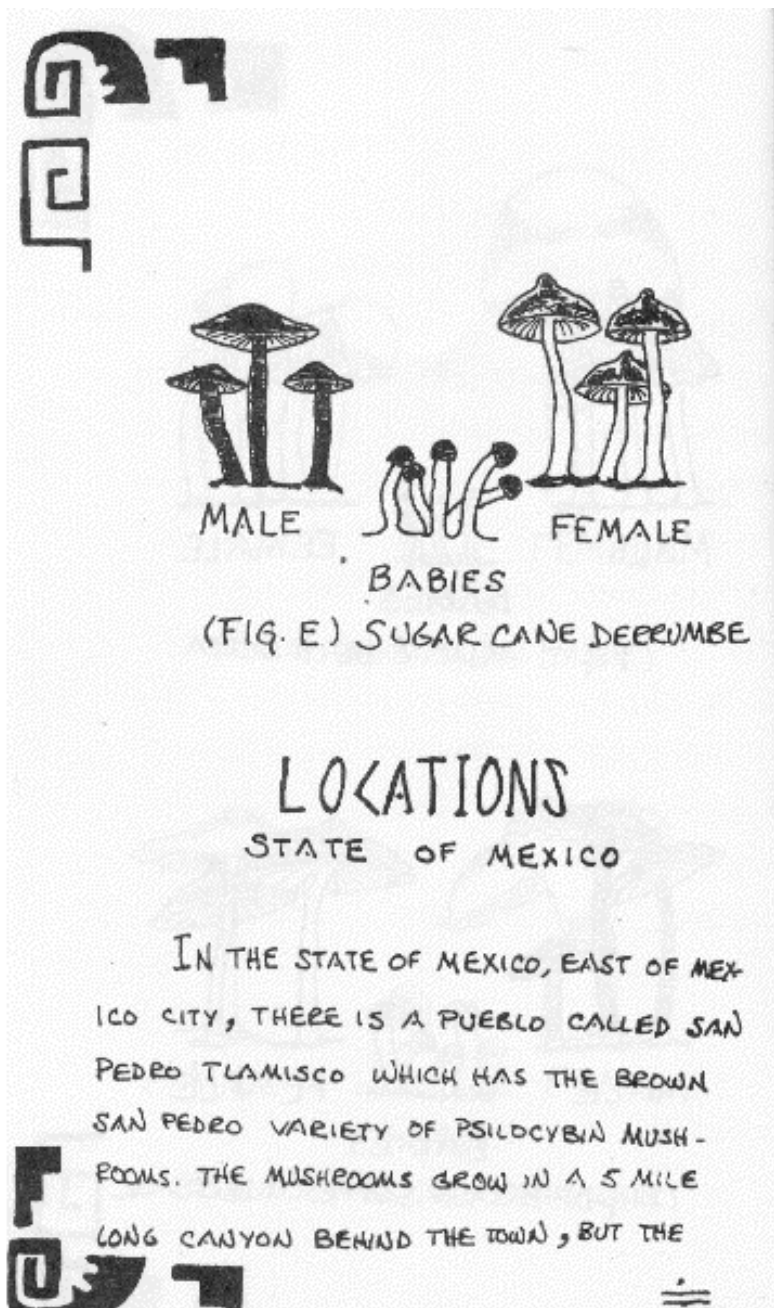 MALE
FEMALE
BABIES
(FIG. E) SUGAR CANE DERRUMBE
LOCATIONS
STATE OF MEXICO
IN THE STATE OF MEXICO, EAST OF MEX-
ICO CITY, THERE IS A PUEBLO CALLED SAN
PEDRO TLAMISCO WHICH HAS THE BROWN
SAN PEDRO VARIETY OF PSILOCYBIN MUSH-
ROOMS. THE MUSHROOMS GROW IN A 5 MILE
LONG CANYON BEHIND THE TOWN, BUT THE